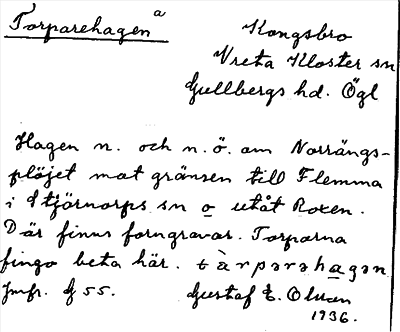 Torparehagen a
Kongsbro
Vreta Kloster sn
Gullbergs hd. Ögl
Hagen n. och n.ö. om Norrängs-
plöjet mot gränsen till Flemma
i Stjärnorps sn o utåt Roxen.
Där finns forngravar. Torparna
fingo beta här. tàrparəhagən
Jmfr. G 55. Gustaf E. Olsson
1936.